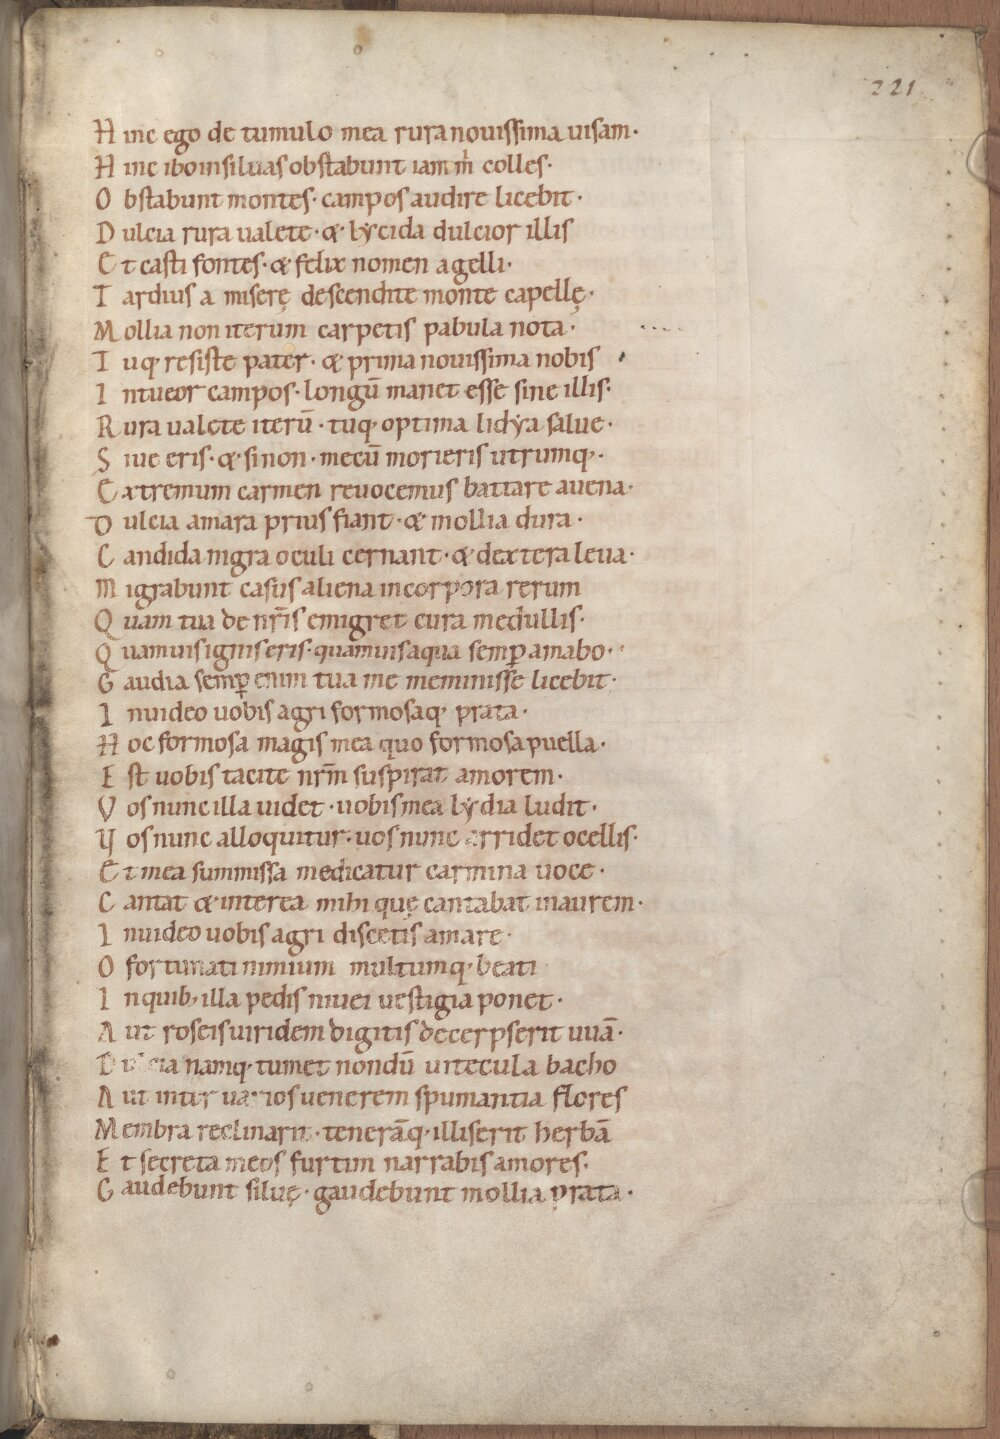 221
H inc ego de tumulo mea rura nouissima uisam·
H inc ibo in siluas obstabunt iam m̄ colles·
O bstabunt montes· campos audire licebit·
D ulcia rura ualete· & lẏcida dulcior illis
E t casti fontes· & felix nomen agelli·
T ardius a miserę descendite monte capellę·
M ollia non iterum carpetis pabula nota·
T uq· resiste pater· & prima nouissima nobis
I ntueor campos· longū manet esse sine illis·
R ura ualete iterū· tuq· optima lidẏa salue·
S iue eris· & si non· mecū morieris utrumq·
E xtremum carmen reuocemus battare auena·
D ulcia amara prius fiant· & mollia dura·
C andida nigra oculi cernant· & dextera leua·
M igrabunt casus aliena in corpora rerum
Q uam tua de nr̄is emigret cura medullis·
Q uamuis ignis eris· quamuis aqua semp̄ amabo·
G audia semp̄ enim tua me meminisse licebit·
I nuideo uobis agri formosaq· prata·
H oc formosa magis mea quo formosa puella·
E st uobis tacite nr̄m suspirat amorem·
V os nunc illa uidet· uobis mea lẏdia ludit·
V os nunc alloquitur· uos nunc arridet ocellis·
E t mea summissa medicatur carmina uoce·
C antat & interea mihi quę cantabat in aurem·
I nuideo uobis agri discetis amare·
O fortunati nimium multumq· beati
I n quib; illa pedis niuei uestigia ponet·
A ut roseis uiridem digitis decerpserit uuā·
D ulcia namq· tumet nondū uitecula bacho
A ut inter uarios uenerem spumantia flores
M embra reclinarit· tenerāq· illiserit herbā
E t secreta meos furtim narrabis amores·
G audebunt siluę· gaudebunt mollia prata·